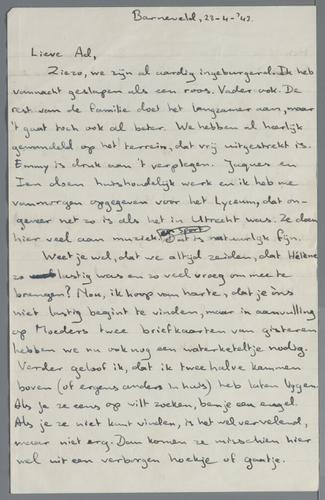 Barneveld, 23-4-'43.
Lieve Ad,
Ziezo, we zijn al aardig ingeburgerd. Ik heb
vannacht geslapen als een roos. Vader ook. De
rest van de familie doet het langzamer aan, maar
't gaat toch ook al beter. We hebben al heerlijk
gewandeld op het terrein, dat vrij uitgestrekt is.
Emmy is druk aan 't verplegen. Jaques en
Ien doen huishoudelijk werk en ik heb me
vanmorgen opgegeven voor het Lyceum, dat on-
geveer net zo is als het in Utrecht was. Ze doen
hier veel aan muziek en sport. Dat is natuurlijk fijn.
Weet je wel, dat we altijd zeiden, dat Hélène
zo lustig was en zo veel vroeg om mee te
brengen? Nou, ik hoop van harte, dat je òns
niet lustig begint te vinden, maar in aanvulling
op Moeders twee briefkaarten van gisteren
hebben we nu ook nog een waterketeltje nodig.
Verder geloof ik, dat ik twee halve kammen
boven (of ergens anders in huis) heb laten liggen.
Als je ze eens op wilt zoeken, ben je een engel.
Als je ze niet kunt vinden, is het wel vervelend,
maar niet erg. Dan komen ze misschien hier
wel uit een verborgen hoekje of gaatje.